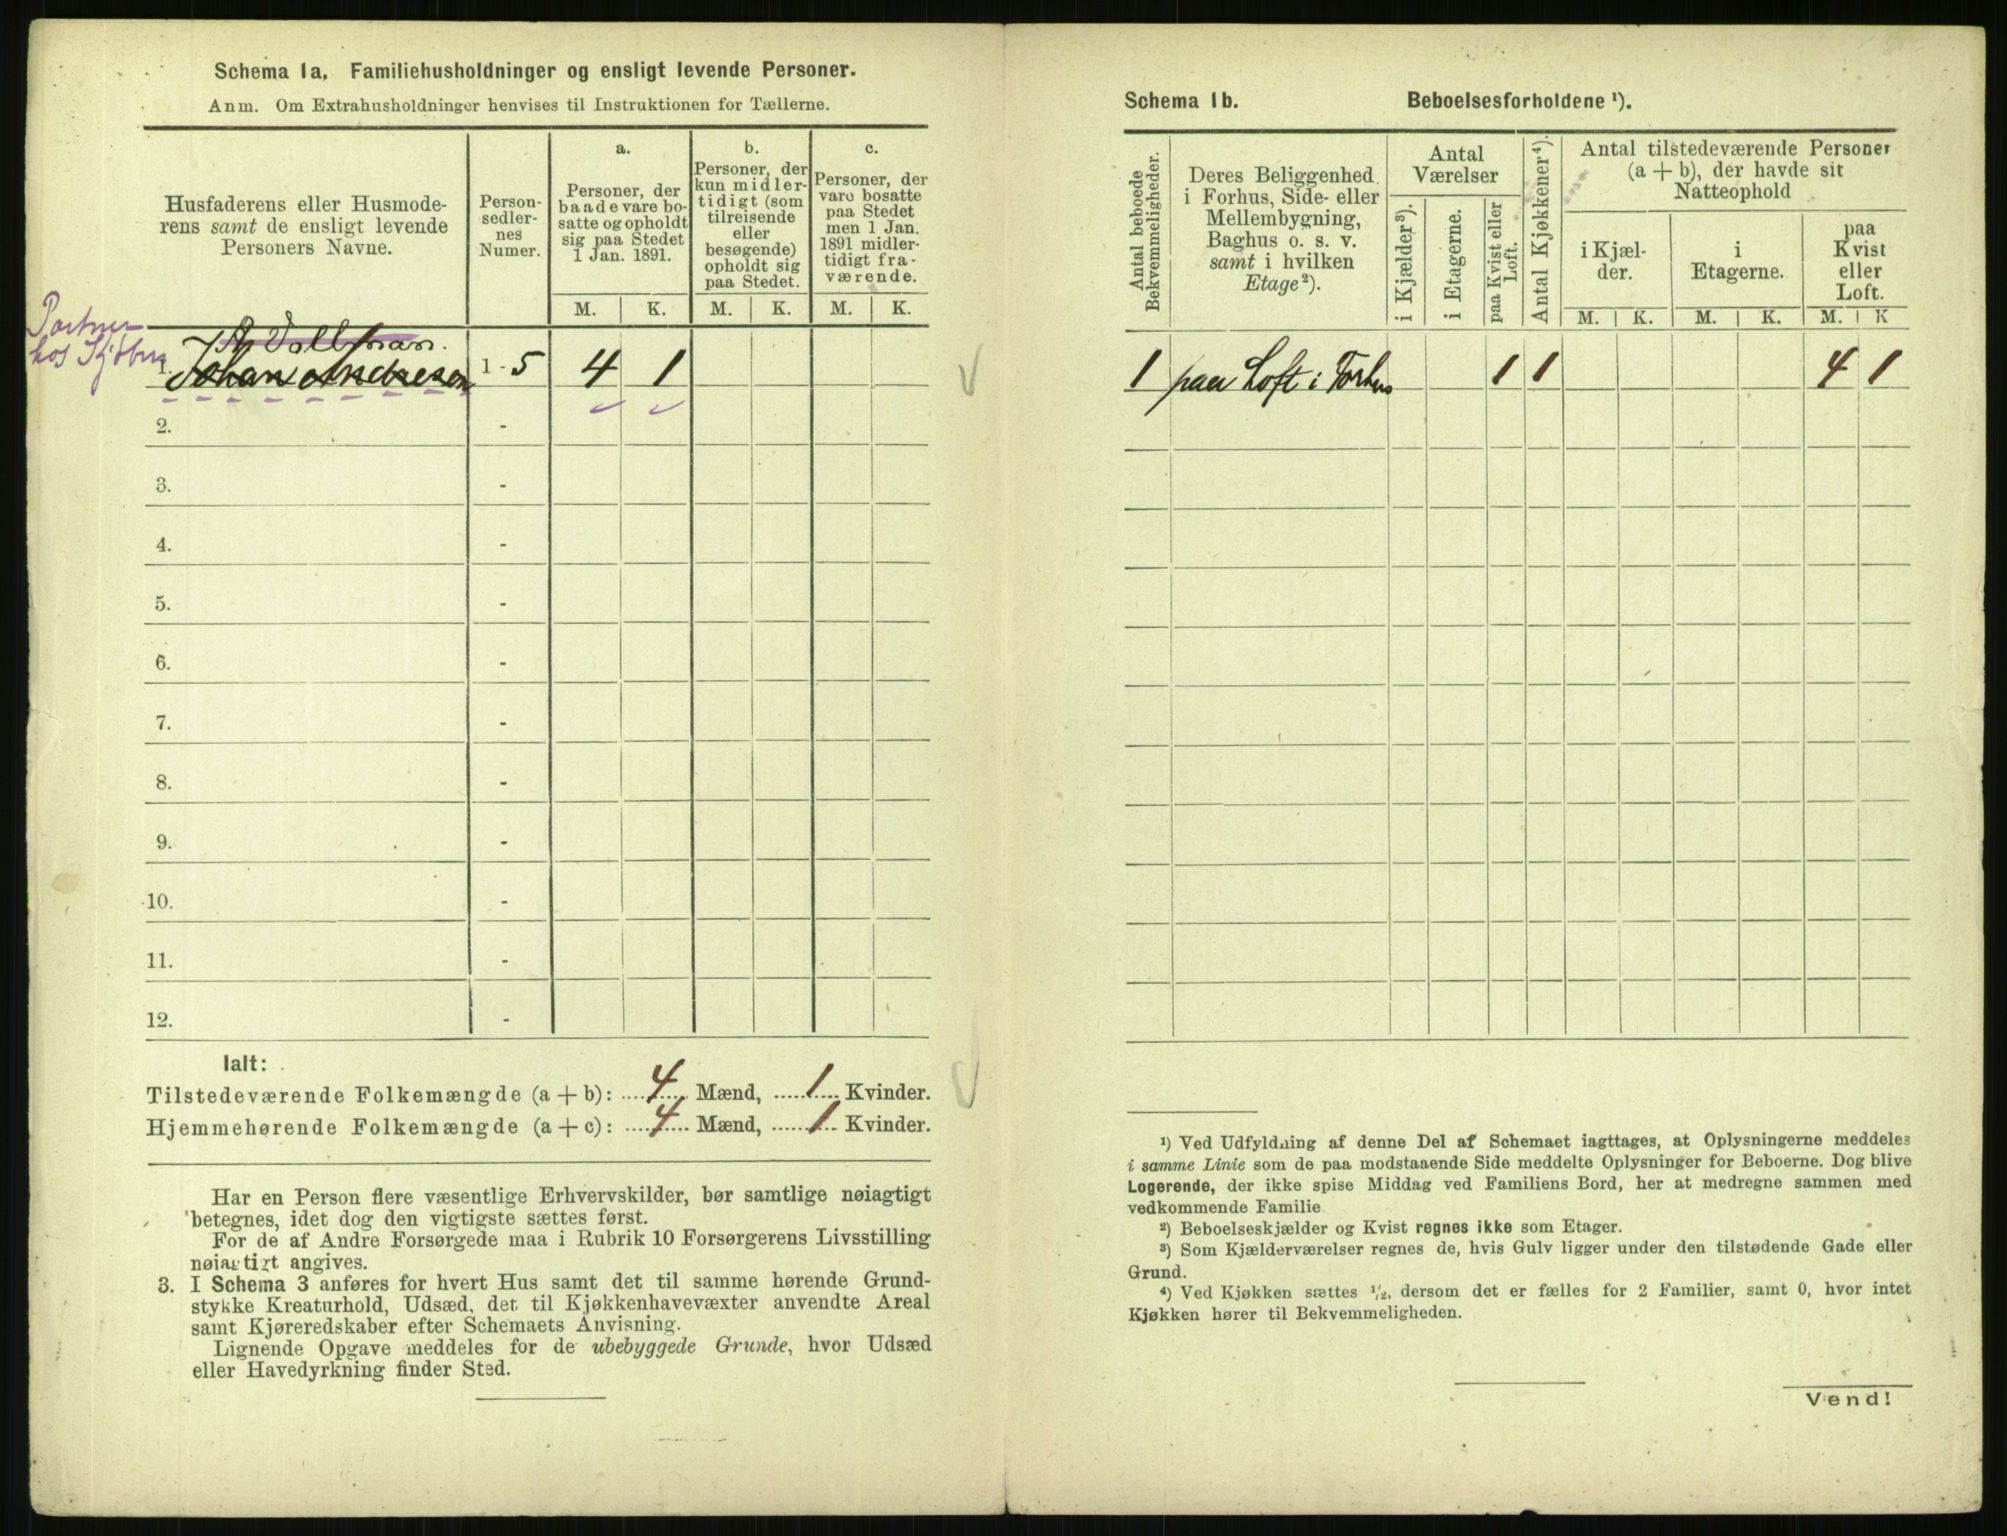 Schema 1a, Familiehusholdninger og ensligt levende Personer.
Anm. Om Extrahusholdninger henvises til Instruktionen for Tællerne.
Husfaderens eller Husmode-
rens samt de ensligt levende
Personers Navne.
Person-
sedler-
nes
Numer.
a.
Personer, der
baade vare bo-
satte og opholdt
sig paa Stedet
1 Jan. 1891.
b.
Personer, der
kun midler-
tidigt (som
tilreisende
eller
besøgende)
opholdt sig
paa Stedet.
c.
Personer, der
vare bosatte
paa Stedet
men 1 Jan.
1891 midler-
tidigt fra-
værende.
M. K. M. K. M. K.
hos
1. Johan Andresen 1-5 4 1
2. -
3. -
4. -
5. -
6. -
7. -
8. -
9. -
10. -
11. -
12. -
Ialt:
Tilstedeværende Folkemængde (a + b): 4 Mænd, 1 Kvinder.
Hjemmehørende Folkemængde (a + c): 4 Mænd, 1 Kvinder.
Har en Person flere væsentlige Erhvervskilder, bør samtlige nøiagtigt
betegnes, idet dog den vigtigste sættes først.
For de af Andre Forsørgede maa i Rubrik 10 Forsørgerens Livsstilling
nøiagtigt angives.
3. I Schema 3 anføres for hvert Hus samt det til samme hørende Grund-
stykke Kreaturhold, Udsæd, det til Kjøkkenhavevæxter anvendte Areal
samt Kjøreredskaber efter Schemaets Anvisning.
Lignende Opgave meddeles for de ubebyggede Grunde, hvor Udsæd
eller Havedyrkning finder Sted.
Schema 1b. Beboelsesforholdene ¹).
Antal beboede
Bekvemmeligheder.
Deres Beliggenhed
i Forhus, Side- eller
Mellembygning,
Baghus o. s. v.
samt i hvilken
Etage²).
Antal
Værelser
i Kjælder³).
i Etagerne.
paa Kvist eller
Loft.
Antal Kjøkkener⁴).
Antal tilstedeværende Personer
(a + b), der havde sit
Natteophold
i Kjæl-
der.
i
Etagerne.
paa
Kvist
eller
Loft.
M. K. M. K. M. K
1 paa Loft i Forhus 1 1 4 1
¹) Ved Udfyldning af denne Del af Schemaet iagttages, at Oplysningerne meddeles
i samme Linie som de paa modstaaende Side meddelte Oplysninger for Beboerne. Dog blive
Logerende, der ikke spise Middag ved Familiens Bord, her at medregne sammen med
vedkommende Familie
²) Beboelseskjælder og Kvist regnes ikke som Etager.
³) Som Kjælderværelser regnes de, hvis Gulv ligger under den tilstødende Gade eller
Grund.
⁴) Ved Kjøkken sættes ½, dersom det er fælles for 2 Familier, samt 0, hvor intet
Kjøkken hører til Bekvemmeligheden.
Vend!